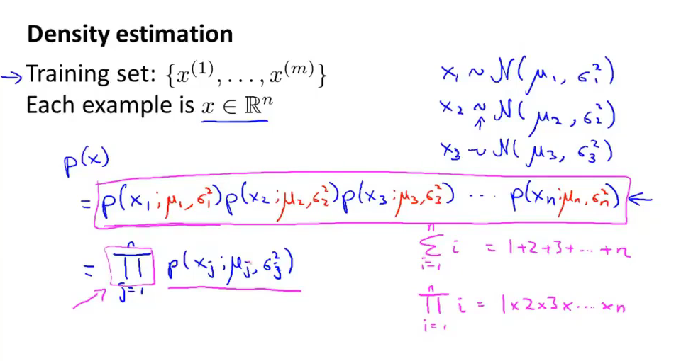 Density estimation
→ Training set: {x^(1), . . . , x^(m)}
Each example is x ∈ ℝ^n
x₁ ~ N(μ₁, σ₁²)
x₂ ~ N(μ₂, σ₂²)
x₃ ~ N(μ₃, σ₃²)
p(x)
= p(x₁; μ₁, σ₁²) p(x₂; μ₂, σ₂²) p(x₃; μ₃, σ₃²) ⋯ p(xₙ; μₙ, σₙ²) ←
= ∏_{j=1}^{n} p(xⱼ; μⱼ, σⱼ²)
∑_{i=1}^{n} i = 1+2+3+⋯+n
∏_{i=1}^{n} i = 1×2×3×⋯×n